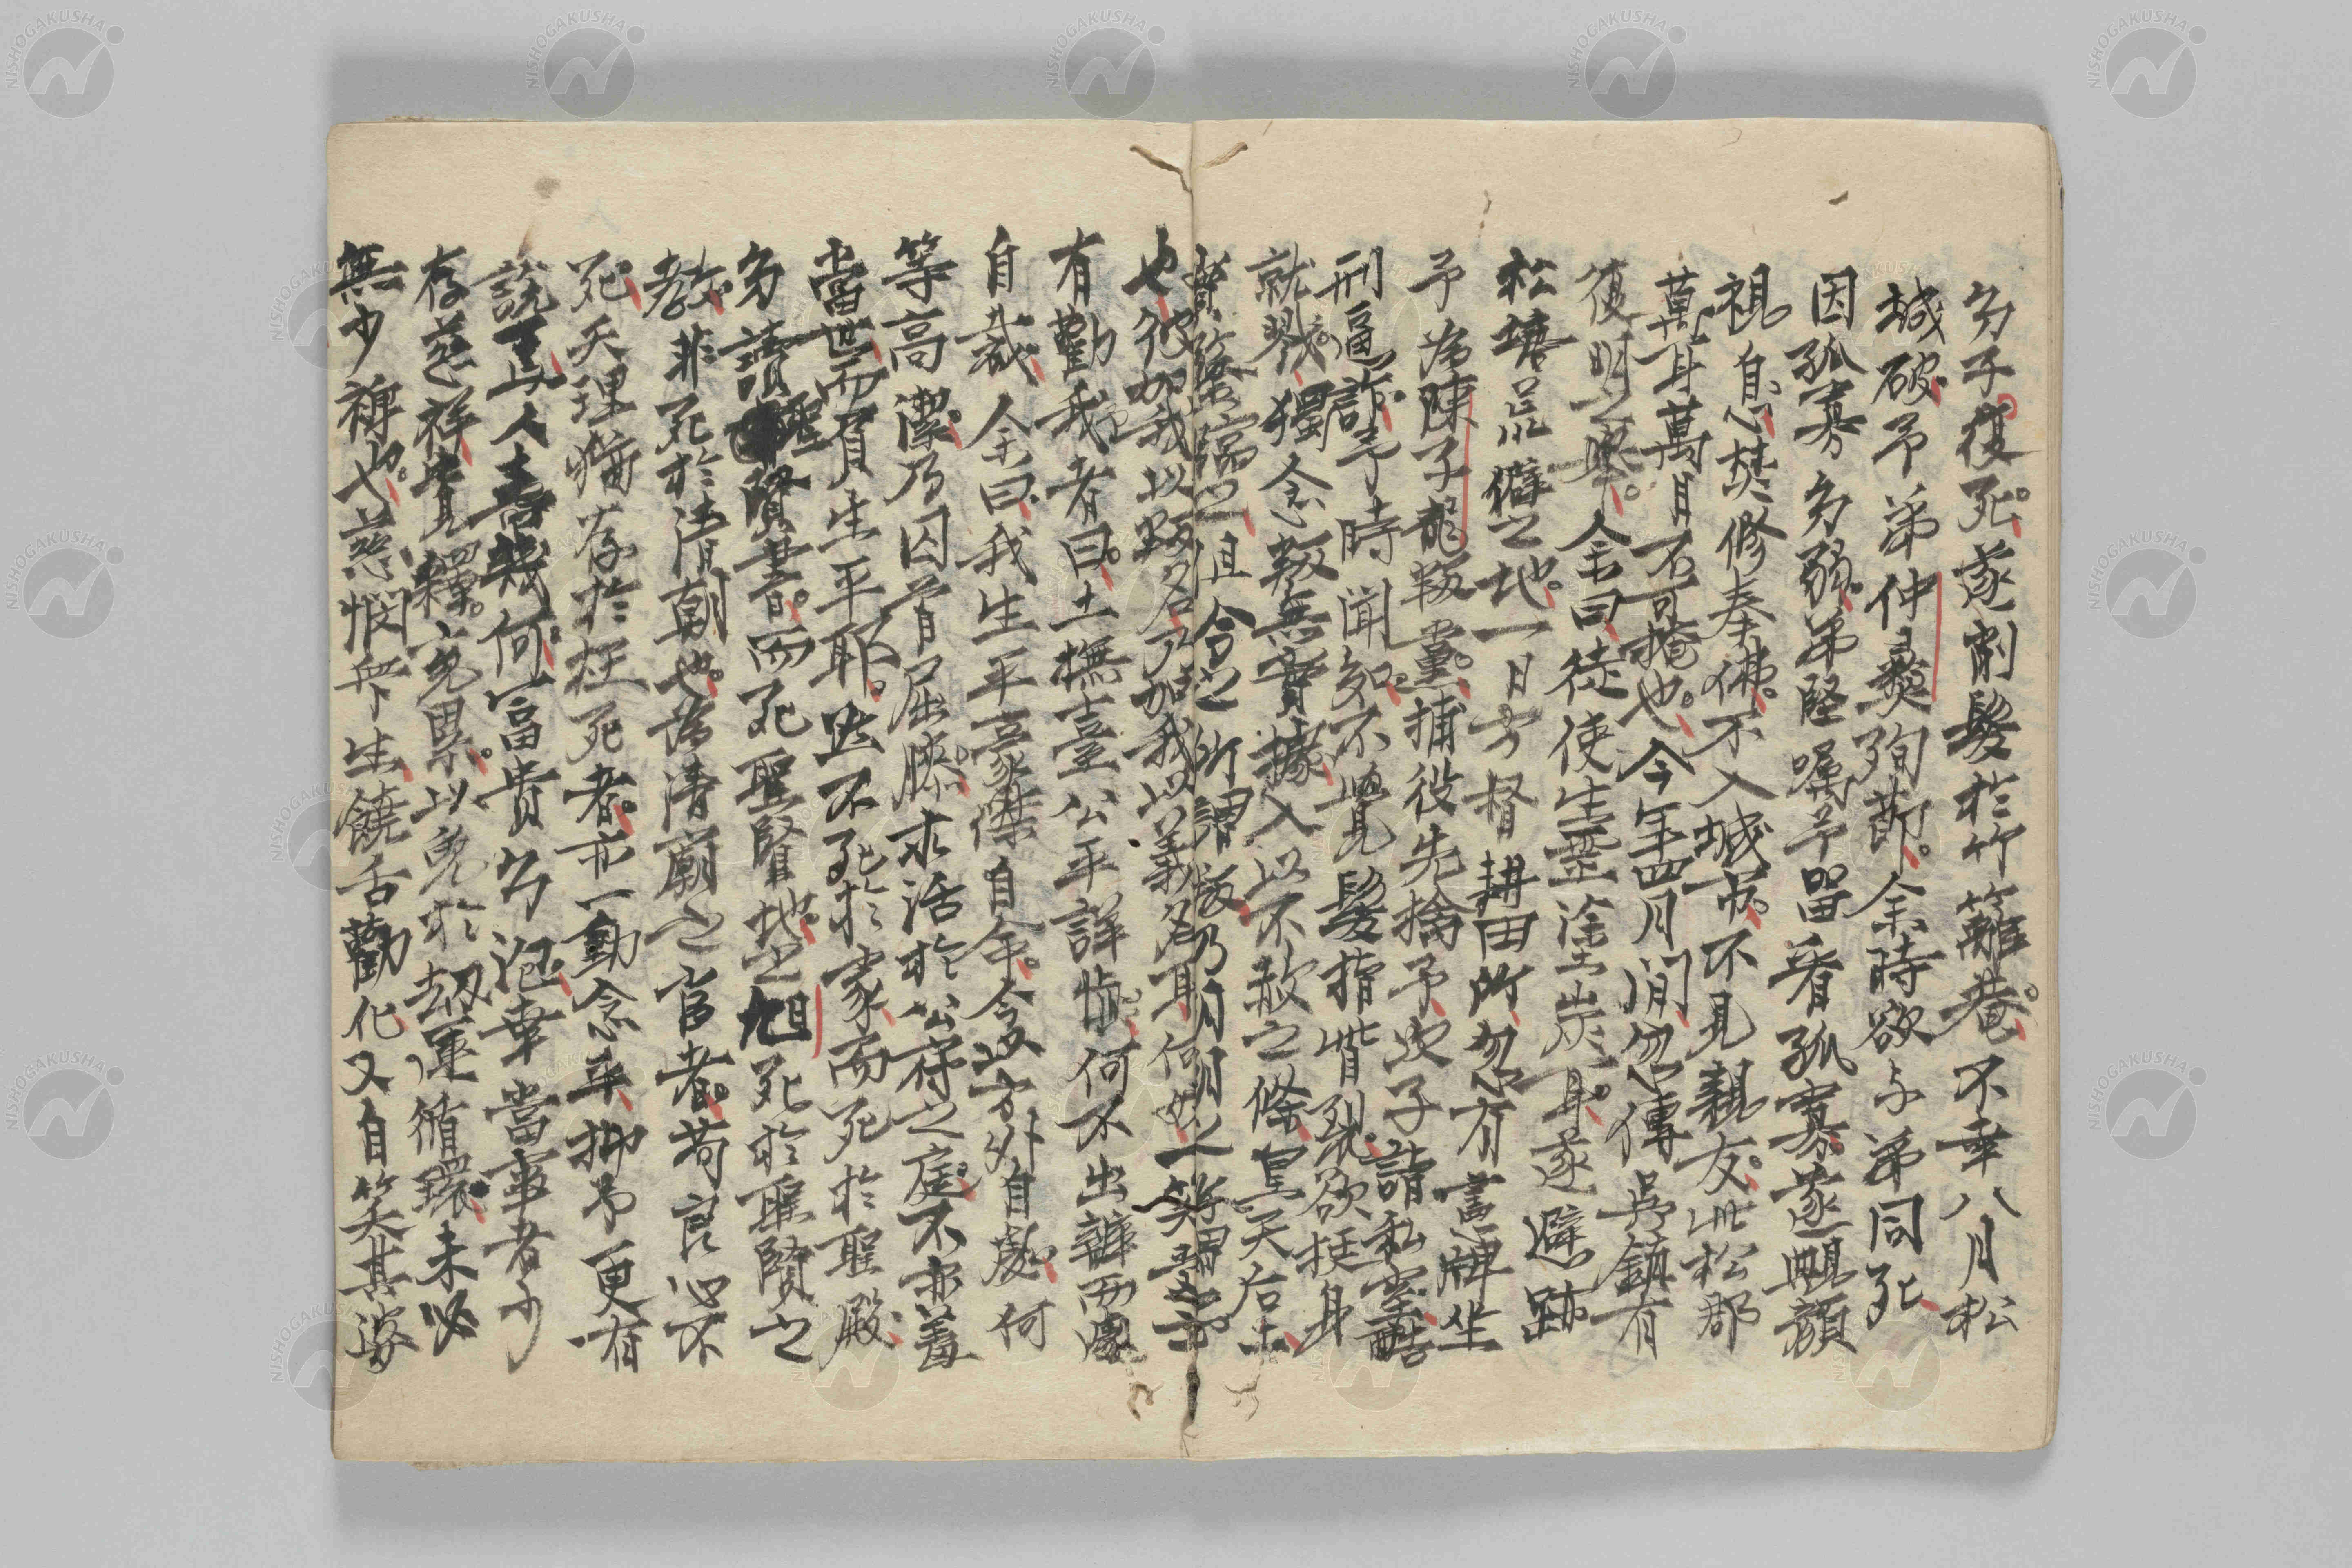 幼子復死。遂削髮於竹籬菴。不幸八月松
城破。予弟仲彛殉節。余時欲与弟同死
因孤寡幼弱。弟堅囑予畱看孤寡遂靦顔
視息焚修奉佛。不入城市。不見親友。此松郡
萬耳萬目不可掩也。今年四月間忽傳吳鎮有
復明之舉。余曰徒使生靈塗炭耳。遂避跡
松墳荒僻之地。一月方督耕田所忽有憲牌坐
予為陳子龍叛黨。捕役先擒予次子請私室酷
刑逼詐。予時聞知。不覺髮指眥裂。欲挺身
就戮。獨念叛無實據入以不赦之條皇天后土
實鑒臨之且今之所謂叛乃明朝之
也彼加我以叛名乃加我以義名耳何
有勸我者曰。土撫臺公平詳慎。何不出辯而處
自裁。余曰我生平豪傑自命。今以方外自處。何
等高潔。乃囚首屈膝。求活於公府之庭。不亦羞
當世而負生平耶。與不死於家而死於聖殿
幼讀聖賢書。而死聖賢地。之旭死於聖賢之
教。非死於清朝也。為清廟之官者。苟良心不
死天理猶存於枉死者。亦一動念乎抑予更有
說焉人壽幾何。富貴幻泡幸當事者少
存慈祥寬釋。寃累。以免於劫運循環。未必
無少裨也。慈憫再生饒舌勸化又自笑其婆
NISHOGAKUSHA